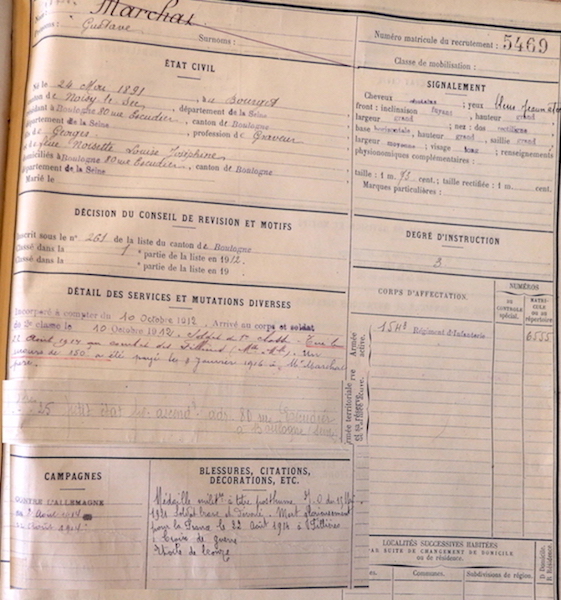 Marchal
Gustave
Surnoms :
Numéro matricule du recrutement : 5469
Classe de mobilisation :
ÉTAT CIVIL
Né le 24 Mai 1891, à Bourget
de Noisy-le-Sec, département de la Seine
à Boulogne 80 rue Escudier, canton de Boulogne
département de la Seine, profession de Graveur
de Georges
et de feue Noisette Louise Joséphine
domiciliés à Boulogne 80 rue Escudier, canton de Boulogne
département de la Seine
Marié le
SIGNALEMENT
Cheveux ; yeux
front : inclinaison fuyant, hauteur grand
largeur grand ; nez : dos rectiligne
base horizontale, hauteur grand, saillie grand
largeur moyenne ; visage long ; renseignements
physionomiques complémentaires :
taille : 1 m. 73 cent.; taille rectifiée : 1 m. cent.
Marques particulières :
DÉCISION DU CONSEIL DE REVISION ET MOTIFS
Inscrit sous le n° 261 de la liste du canton de Boulogne
Classé dans la 1 partie de la liste en 1912.
Classé dans la partie de la liste en 19
DEGRÉ D'INSTRUCTION
3
DÉTAIL DES SERVICES ET MUTATIONS DIVERSES
Incorporé à compter du 10 Octobre 1912. Arrivé au corps et soldat
de 2e classe le 10 Octobre 1912. Soldat de 1re classe. Tué le
22 Août 1914 au combat de Fillières (Mthe Mlle). Un
secours de 150 a été payé le 8 Janvier 1916 à Mr Marchal
père.
80 rue Escudier
à Boulogne (Seine)
CORPS D'AFFECTATION.
NUMÉROS
DE CONTRÔLE spécial.
MATRICULE OU DE répertoire
Armée active.
154e Régiment d'Infanterie
6555
CAMPAGNES
CONTRE L'ALLEMAGNE
août 1914
août 1914
BLESSURES, CITATIONS,
DÉCORATIONS, ETC.
Médaille milit. à titre posthume J.O du
Soldat brave et dévoué. Mort glorieusement
pour la France le 22 Août 1914 à Fillières
Croix de guerre
Etoile de bronze
LOCALITÉS SUCCESSIVES HABITÉES
PAR SUITE DE CHANGEMENT DE DOMICILE
ou de résidence.
Communes.
Subdivisions de région.
D. Domicile.
R. Résidence.